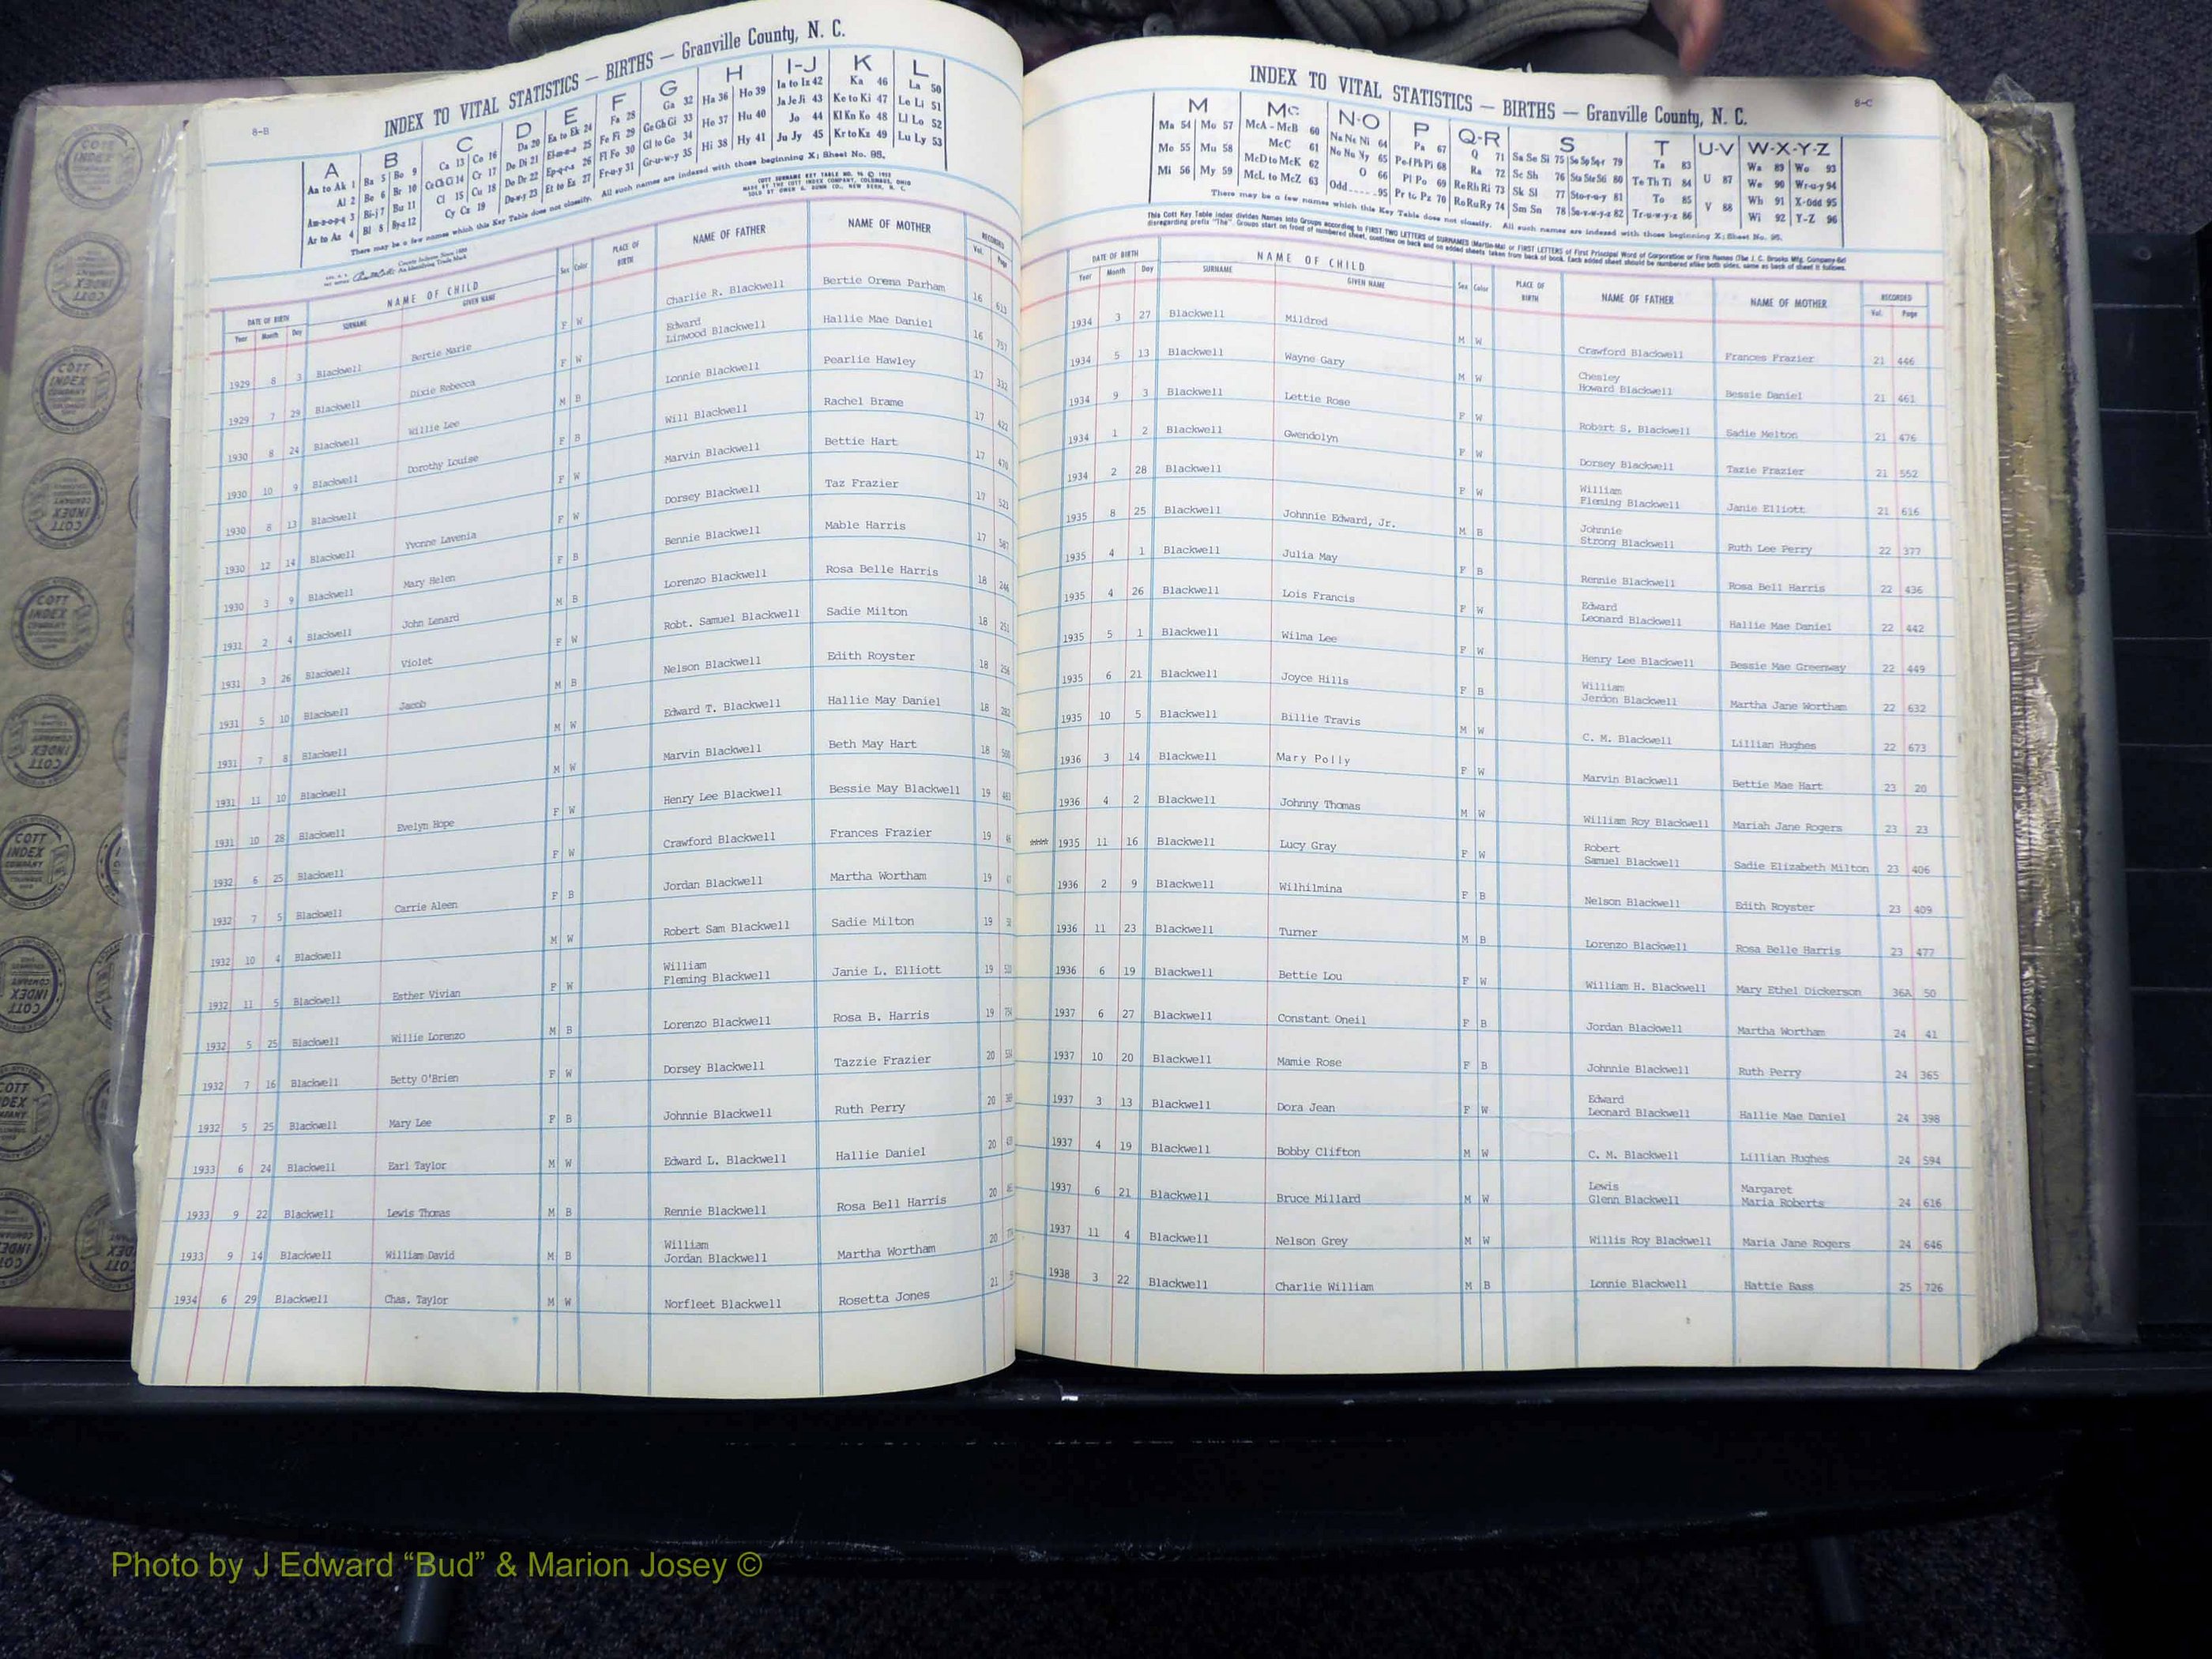 8-B
INDEX TO VITAL STATISTICS — BIRTHS — Granville County, N. C.
A B C D E F G H I-J K L
Aa to Ak 1 Ba 5 Bo 9 Ca 13 Co 16 Da 20 Ea to Ek 24 Fa 28 Ga 32 Ha 36 Ho 39 Ia to Iz 42 Ka 46 La 50
Al 2 Be 6 Br 10 Ce Ch Ci 14 Cr 17 De Di 21 El-m-n-o 25 Fe Fi 29 Ge Gh Gi 33 He 37 Hu 40 Ja Je Ji 43 Ke to Ki 47 Le Li 51
Am-n-o-p-q 3 Bi-j 7 Bu 11 Cl 15 Cu 18 Do Dr 22 Ep-q-r-s 26 Fl Fo 30 Gl to Go 34 Hi 38 Hy 41 Jo 44 Kl Kn Ko 48 Ll Lo 52
Ar to Az 4 Bl 8 By-z 12 Cy Cz 19 Du-w-y 23 Et to Ez 27 Fr-u-y 31 Gr-u-w-y 35 Ju Jy 45 Kr to Kz 49 Lu Ly 53
There may be a few names which this Key Table does not classify. All such names are indexed with those beginning X; Sheet No. 95.
COTT SURNAME KEY TABLE NO.
MADE BY THE COTT INDEX COMPANY, COLUMBUS, OHIO
SOLD BY OWEN G. DUNN CO., NEW BERN, N. C.
County Indexes Since 1888
An Identifying Trade Mark
DATE OF BIRTH NAME OF CHILD Sex Color PLACE OF BIRTH NAME OF FATHER NAME OF MOTHER RECORDED
Year Month Day SURNAME GIVEN NAME Vol. Page
1929 8 3 Blackwell Bertie Marie F W Charlie R. Blackwell Bertie Orema Parham 16 613
1929 7 29 Blackwell Dixie Rebecca F W Edward Linwood Blackwell Hallie Mae Daniel 16 757
1930 8 24 Blackwell Willie Lee M B Lonnie Blackwell Pearlie Hawley 17 332
1930 10 9 Blackwell Dorothy Louise F B Will Blackwell Rachel Brame 17 422
1930 8 13 Blackwell F W Marvin Blackwell Bettie Hart 17 476
1930 12 14 Blackwell Yvonne Lavenia F W Dorsey Blackwell Taz Frazier 17 521
1930 3 9 Blackwell Mary Helen F B Bennie Blackwell Mable Harris 17 587
1931 2 4 Blackwell John Lenard M B Lorenzo Blackwell Rosa Belle Harris 18 246
1931 3 26 Blackwell Violet F W Robt. Samuel Blackwell Sadie Milton 18 251
1931 5 10 Blackwell Jacob M B Nelson Blackwell Edith Royster 18 256
1931 7 8 Blackwell M W Edward T. Blackwell Hallie May Daniel 18 282
1931 11 10 Blackwell M W Marvin Blackwell Beth May Hart 18
1931 10 28 Blackwell Evelyn Hope F W Henry Lee Blackwell Bessie May Blackwell 19
1932 6 25 Blackwell F W Crawford Blackwell Frances Frazier 19
1932 7 5 Blackwell Carrie Aleen F B Jordan Blackwell Martha Wortham 19
1932 10 4 Blackwell M W Robert Sam Blackwell Sadie Milton 19
1932 11 5 Blackwell Esther Vivian F W William Fleming Blackwell Janie L. Elliott 19
1932 5 25 Blackwell Willie Lorenzo M B Lorenzo Blackwell Rosa B. Harris 19
1932 7 16 Blackwell Betty O'Brien F W Dorsey Blackwell Tazzie Frazier 20
1932 5 25 Blackwell Mary Lee F B Johnnie Blackwell Ruth Perry 20
1933 6 24 Blackwell Earl Taylor M W Edward L. Blackwell Hallie Daniel 20
1933 9 22 Blackwell Lewis Thomas M B Rennie Blackwell Rosa Bell Harris 20
1933 9 14 Blackwell William David M B William Jordan Blackwell Martha Wortham 20
1934 6 29 Blackwell Chas. Taylor M W Norfleet Blackwell Rosetta Jones 21
8-C
INDEX TO VITAL STATISTICS — BIRTHS — Granville County, N. C.
M Mc N-O P Q-R S T U-V W-X-Y-Z
Ma 54 Mo 57 McA - McB 60 Na Ne Ni 64 Pa 67 Q 71 Sa Se Si 75 So Sp Sq-r 79 Ta 83 U 87 Wa 89 Wo 93
Me 55 Mu 58 McC 61 No Nu Ny 65 Pe-f Ph Pi 68 Ra 72 Sc Sh 76 Sta Ste Sti 80 Te Th Ti 84 V 88 We 90 Wr-u-y 94
Mi 56 My 59 McD to McK 62 O 66 Pl Po 69 Re Rh Ri 73 Sk Sl 77 Sto-r-u-y 81 To 85 Wh 91 X-Odd 95
McL to McZ 63 Odd.....95 Pr to Pz 70 Ro Ru Ry 74 Sm Sn 78 Su-v-w-y-z 82 Tr-u-w-y-z 86 Wi 92 Y-Z 96
There may be a few names which this Key Table does not classify. All such names are indexed with those beginning X; Sheet No. 95.
This Cott Key Table Index divides Names into Groups according to FIRST TWO LETTERS of SURNAMES (Martin-Ma) or FIRST LETTERS of First Principal Word of Corporation or Firm Names (The J. C. Brooks Mfg. Company-Br)
disregarding prefix "The". Groups start on front of numbered sheet, continue on back and on added sheets taken from back of book. Each added sheet should be numbered alike both sides, same as back of sheet it follows.
DATE OF BIRTH NAME OF CHILD Sex Color PLACE OF BIRTH NAME OF FATHER NAME OF MOTHER RECORDED
Year Month Day SURNAME GIVEN NAME Vol. Page
1934 3 27 Blackwell Mildred M W Crawford Blackwell Frances Frazier 21 446
1934 5 13 Blackwell Wayne Gary M W Chesley Howard Blackwell Bessie Daniel 21 461
1934 9 3 Blackwell Lettie Rose F W Robert S. Blackwell Sadie Melton 21 476
1934 1 2 Blackwell Gwendolyn F W Dorsey Blackwell Tazie Frazier 21 552
1934 2 28 Blackwell F W William Fleming Blackwell Janie Elliott 21 616
1935 8 25 Blackwell Johnnie Edward, Jr. M B Johnnie Strong Blackwell Ruth Lee Perry 22 377
1935 4 1 Blackwell Julia May F B Rennie Blackwell Rosa Bell Harris 22 436
1935 4 26 Blackwell Lois Francis F W Edward Leonard Blackwell Hallie Mae Daniel 22 442
1935 5 1 Blackwell Wilma Lee F W Henry Lee Blackwell Bessie Mae Greenway 22 449
1935 6 21 Blackwell Joyce Hills F B William Jerdon Blackwell Martha Jane Wortham 22 632
1935 10 5 Blackwell Billie Travis M W C. M. Blackwell Lillian Hughes 22 673
1936 3 14 Blackwell Mary Polly F W Marvin Blackwell Bettie Mae Hart 23 20
1936 4 2 Blackwell Johnny Thomas M W William Roy Blackwell Mariah Jane Rogers 23 23
**** 1935 11 16 Blackwell Lucy Gray F W Robert Samuel Blackwell Sadie Elizabeth Milton 23 406
1936 2 9 Blackwell Wilhilmina F B Nelson Blackwell Edith Royster 23 409
1936 11 23 Blackwell Turner M B Lorenzo Blackwell Rosa Belle Harris 23 477
1936 6 19 Blackwell Bettie Lou F W William H. Blackwell Mary Ethel Dickerson 36A 50
1937 6 27 Blackwell Constant Oneil F B Jordan Blackwell Martha Wortham 24 41
1937 10 20 Blackwell Mamie Rose F B Johnnie Blackwell Ruth Perry 24 365
1937 3 13 Blackwell Dora Jean F W Edward Leonard Blackwell Hallie Mae Daniel 24 398
1937 4 19 Blackwell Bobby Clifton M W C. M. Blackwell Lillian Hughes 24 594
1937 6 21 Blackwell Bruce Millard M W Lewis Glenn Blackwell Margaret Maria Roberts 24 616
1937 11 4 Blackwell Nelson Grey M W Willis Roy Blackwell Maria Jane Rogers 24 646
1938 3 22 Blackwell Charlie William M B Lonnie Blackwell Hattie Bass 25 726
Photo by J Edward “Bud” & Marion Josey ©